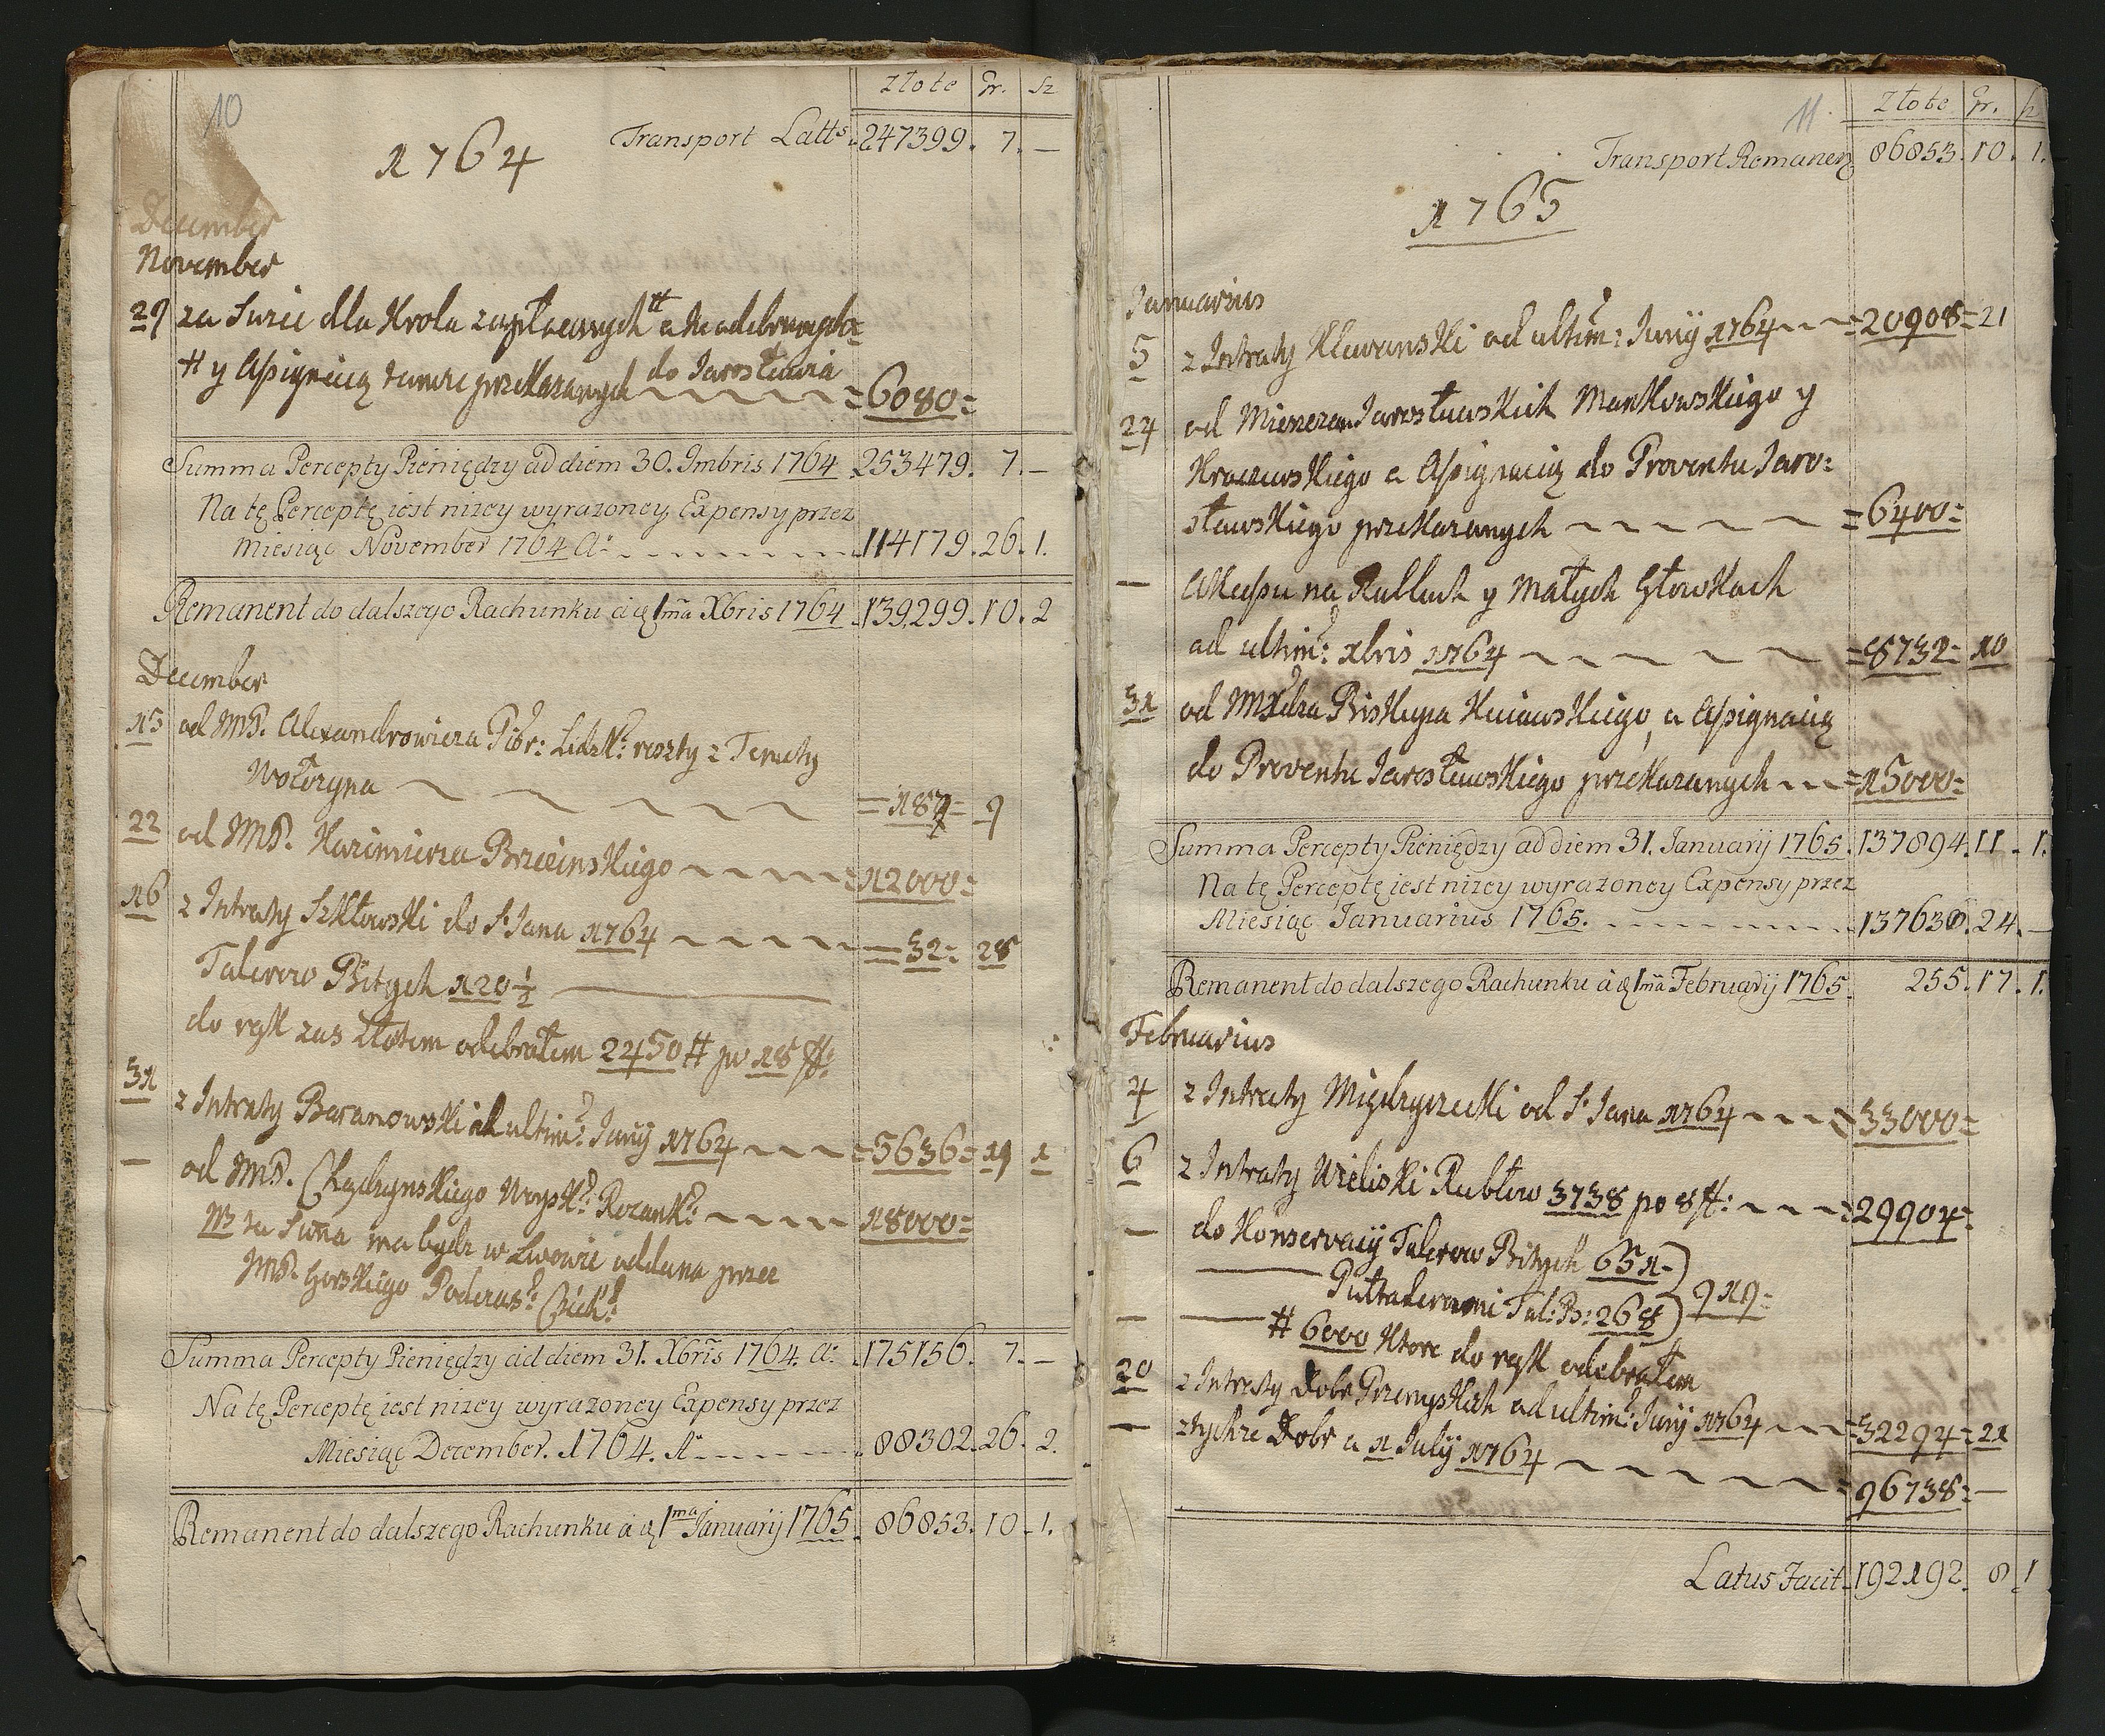 10
Złote Gr. Sz
Transport Latts 247399. 7. —
1764
December
November
29 za Surie dla Krola zapłaconych
# y Asignacią temuz przekazanych do Jarosławia = 6080 =
Summa Percepty Pieniędzy ad diem 30. 9mbris 1764 . 253479. 7. —
Na tę Perceptę iest nizey wyrazoney Expensy przez
Miesiąc November 1764 A: . 114179. 26. 1.
Remanent do dalszego Rachunku a die 1ma Xbris 1764 . 139299. 10. 2
December
15 od MP. Alexandrowicza Pisr: Lidzk: reszty z Tenuty
Wołozyna = 187 = 9
22 od MP. Kazimierza Brzezinskiego = 12000 =
26 z Intraty Szkłowski do S. Jana 1764 = 32 = 28
Talerow Bitych 120 ½
do rąk zas Złotem odebrałem 2450 # po 18 ff:
31 z Intraty Baranowski ad ultim: Junij 1764 = 5636 = 19 1
— od MP. Chądzynskiego Woysk: Rozank: 18000 =
NB ta Suma ma bydz w Lwowie oddana przez
JMP. Gorskiego Podczas:
Summa Percepty Pieniędzy ad diem 31. Xbris 1764. A: . 175156. 7. —
Na tę Perceptę iest nizey wyrazoney Expensy przez
Miesiąc December. 1764. A . 88302. 26. 2.
Remanent do dalszego Rachunku a die 1ma Januarij 1765 . 86853. 10. 1.
11.
Złote Gr. sz
Transport Remanen. 86853. 10. 1.
1765
Januarius
5 z Intraty Klewanski ad ultim: Junij 1764 = 20908 = 21
24 od Mieszczan Jarosławskich Mankowskiego y
Kraczewskiego a Asignacią do Proventu Jaro:
sławskiego przekazanych = 6400 =
— Akcepsu na Kullach y Małych Głowkach
ad ultim: xbris 1764 = 8732 = 10
31 od MXdza Biskupa Kuiawskiego, a Asignacią
do Proventu Jarosławskiego przekazanych = 15000 =
Summa Percepty Pieniędzy ad diem 31. Januarij 1765. 137894. 11. 1.
Na tę Perceptę iest nizey wyrazoney Expensy przez
Miesiąc Januarius 1765. 137638. 24. —
Remanent do dalszego Rachunku a die 1ma Februarij 1765. 255. 17. 1.
Februarius
4 z Intraty Międzyrzecki od S. Jana 1764 = 33000 =
6 z Intraty Wieliski Rublow 3738 po 8 ff: = 29904 =
— do Konserwacij Talerow Bitych 651
Pułtalerami Tal: B: 268 919 =
— # 6000 ktore do rąk odebrałem
20 z Intraty Dobr Przemyskich ad ultim: Junij 1764 = 32294 = 21
— z tychze Dobr a 1 Julij 1764 = 96738 = —
Latus Facit. 192192. 8. 1